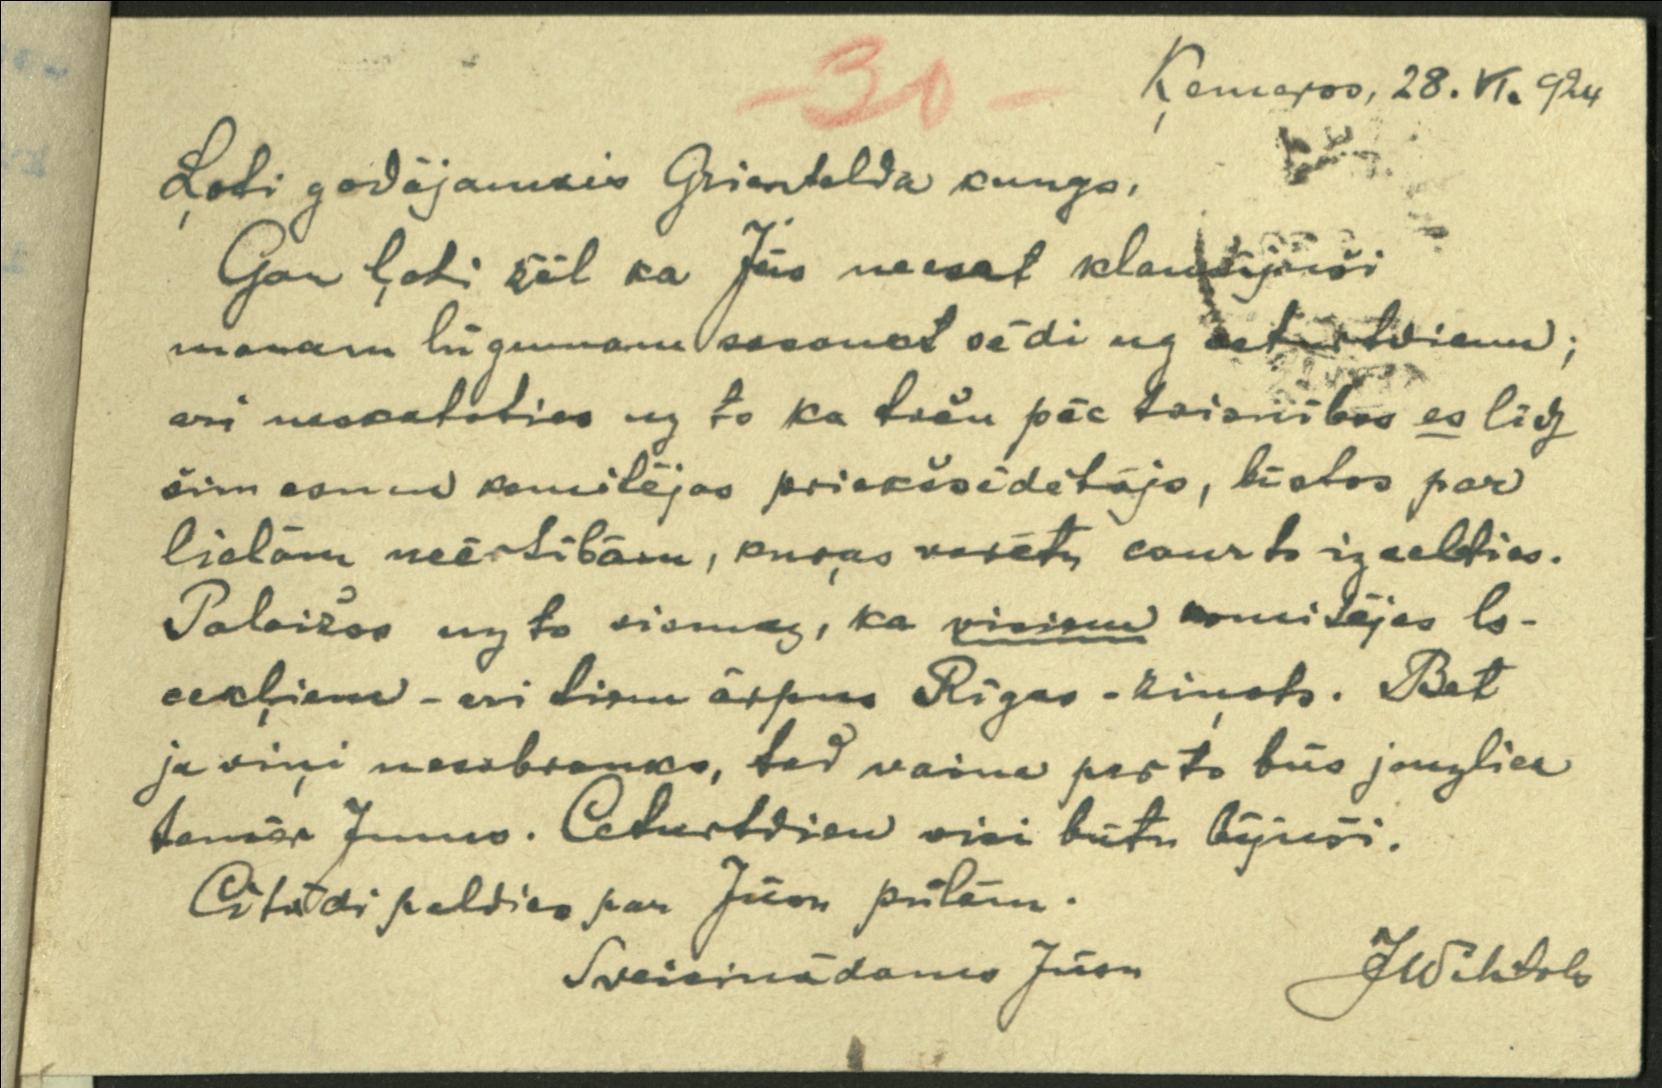 -30-
Ķemeros, 28. VI. 924
Ļoti godājamais Grinfelda kungs,
Gan ļoti žēl ka Jūs neesat klausījuši
manam lūgumam sasaukt sēdi uz ceturtdienu;
ari neskatoties uz to ka taču pēc taisnības es līdz
šim esmu komitējas priekšsēdētājs, lietas par
lielām neērtībām, kuŗas varētu caur to izcelties.
Palaižos uz to vismaz, ka visiem komitējas lo-
cekļiem - ari tiem ārpus Rīgas - ziņots. Bet
ja viņi neatbrauks, tad vaina par to būs jāuzliek
tomēr Jums. Ceturtdien visi būtu bijuši.
Citādi paldies par Jūsu pūlēm.
Sveicinādams Jūsu
JWihtols